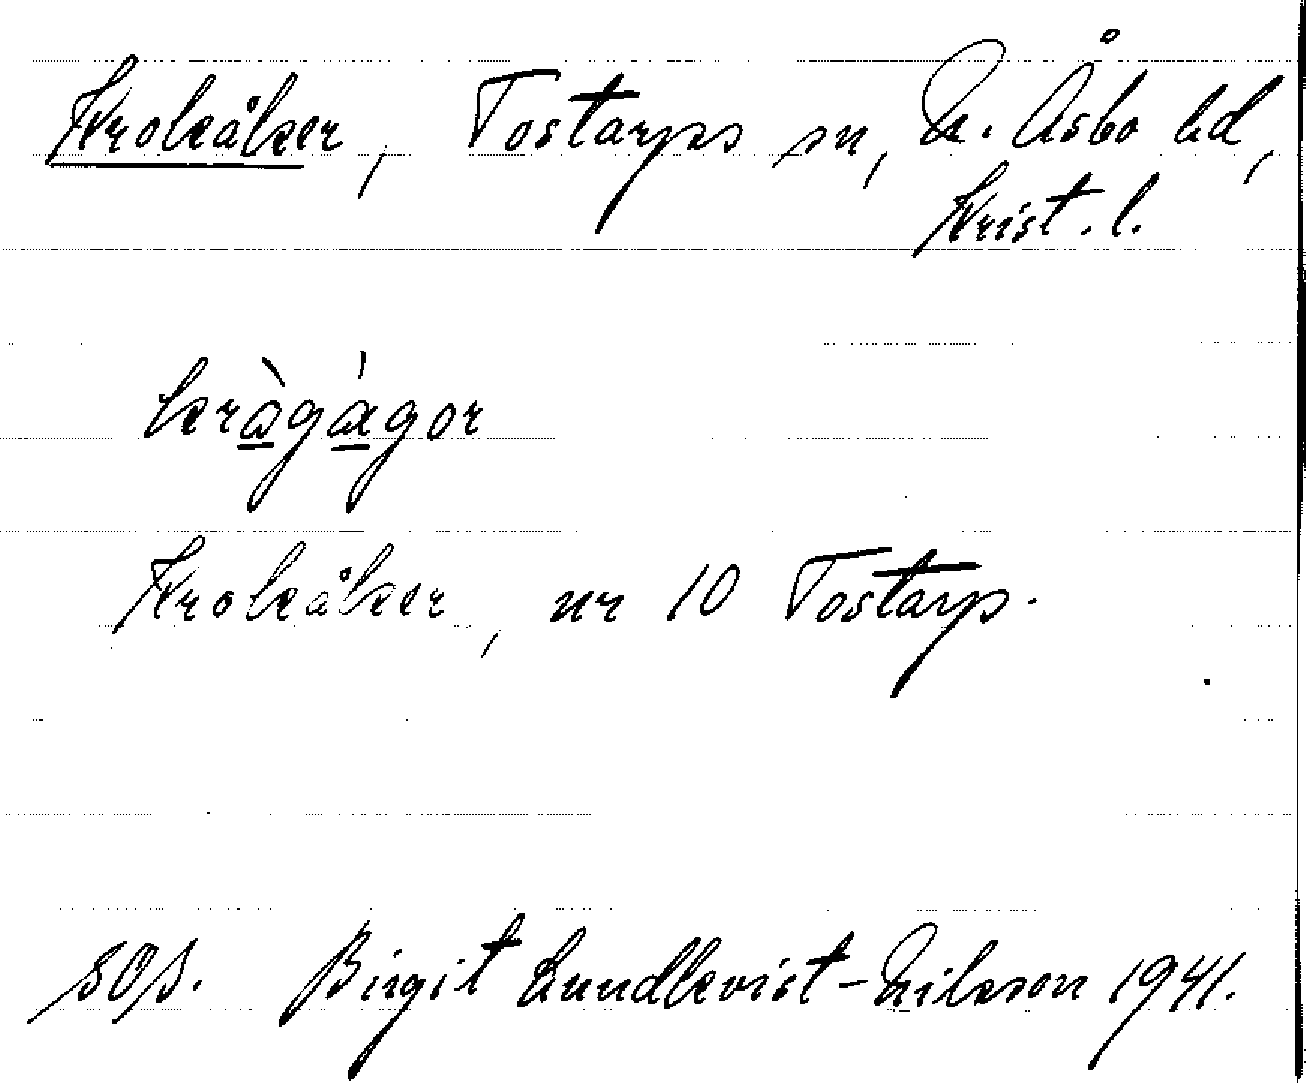 Krokåker, Tostarps sn, N. Åsbo hd,
Krist. l.
kràgágor
Krokåker, nr 10 Tostarp.
Birgit Lundkvist-Nilsson 1941.